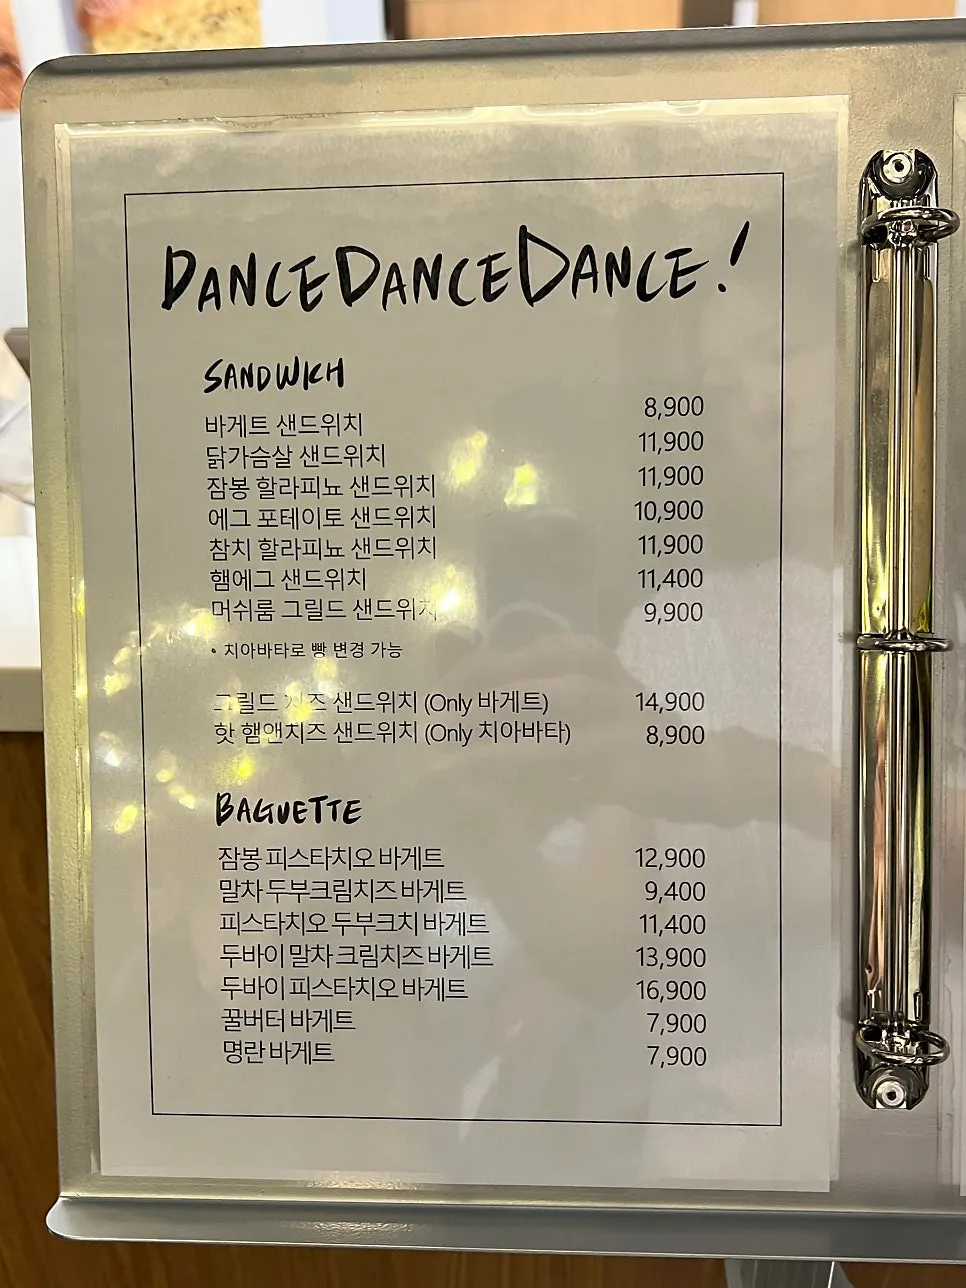 DANCEDANCEDANCE!
SANDWICH
바게트 샌드위치 8,900
닭가슴살 샌드위치 11,900
잠봉 할라피뇨 샌드위치 11,900
에그 포테이토 샌드위치 10,900
참치 할라피뇨 샌드위치 11,900
햄에그 샌드위치 11,400
머쉬룸 그릴드 샌드위치 9,900
• 치아바타로 빵 변경 가능
그릴드 치즈 샌드위치 (Only 바게트) 14,900
핫 햄앤치즈 샌드위치 (Only 치아바타) 8,900
BAGUETTE
잠봉 피스타치오 바게트 12,900
말차 두부크림치즈 바게트 9,400
피스타치오 두부크치 바게트 11,400
두바이 말차 크림치즈 바게트 13,900
두바이 피스타치오 바게트 16,900
꿀버터 바게트 7,900
명란 바게트 7,900